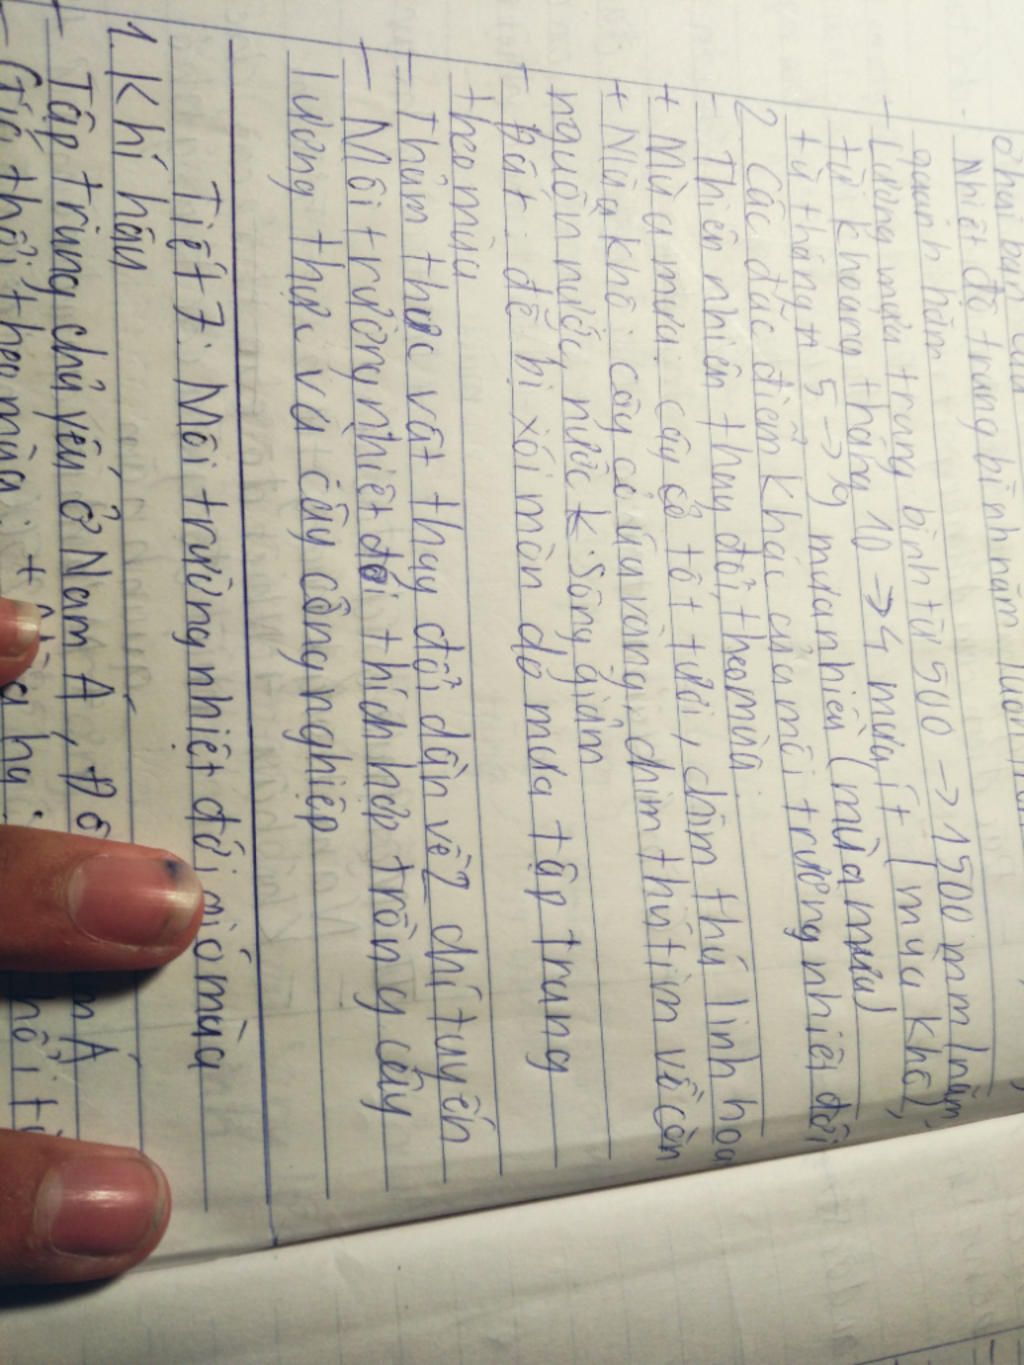 ở hai bán cầu
- Nhiệt độ trung bình năm luôn
quanh năm
- Lượng mưa trung bình từ 500 -> 1500 mm / năm,
từ khoảng tháng 10 -> 4 mưa ít (mùa khô),
từ tháng 5 -> 9 mưa nhiều (mùa mưa)
2 Các đặc điểm khác của môi trường nhiệt đới
- Thiên nhiên thay đổi theo mùa.
+ Mùa mưa: cây cỏ tốt tươi, chim thú linh hoạ
+ Mùa khô: cây cỏ úa vàng, chim thú tìm về cần
nguồn nước, nước k. Sông giảm
- Đất: dễ bị xói mòn do mưa tập trung
theo mùa
- Thảm thực vật thay đổi dần về 2 chí tuyến
- Môi trường nhiệt đới thích hợp trồng cây
lương thực và cây công nghiệp
Tiết 7: Môi trường nhiệt đới gió mùa
1. Khí hậu
- Tập trung chủ yếu ở Nam Á, Đô Á
- Gió thổi theo mùa: +